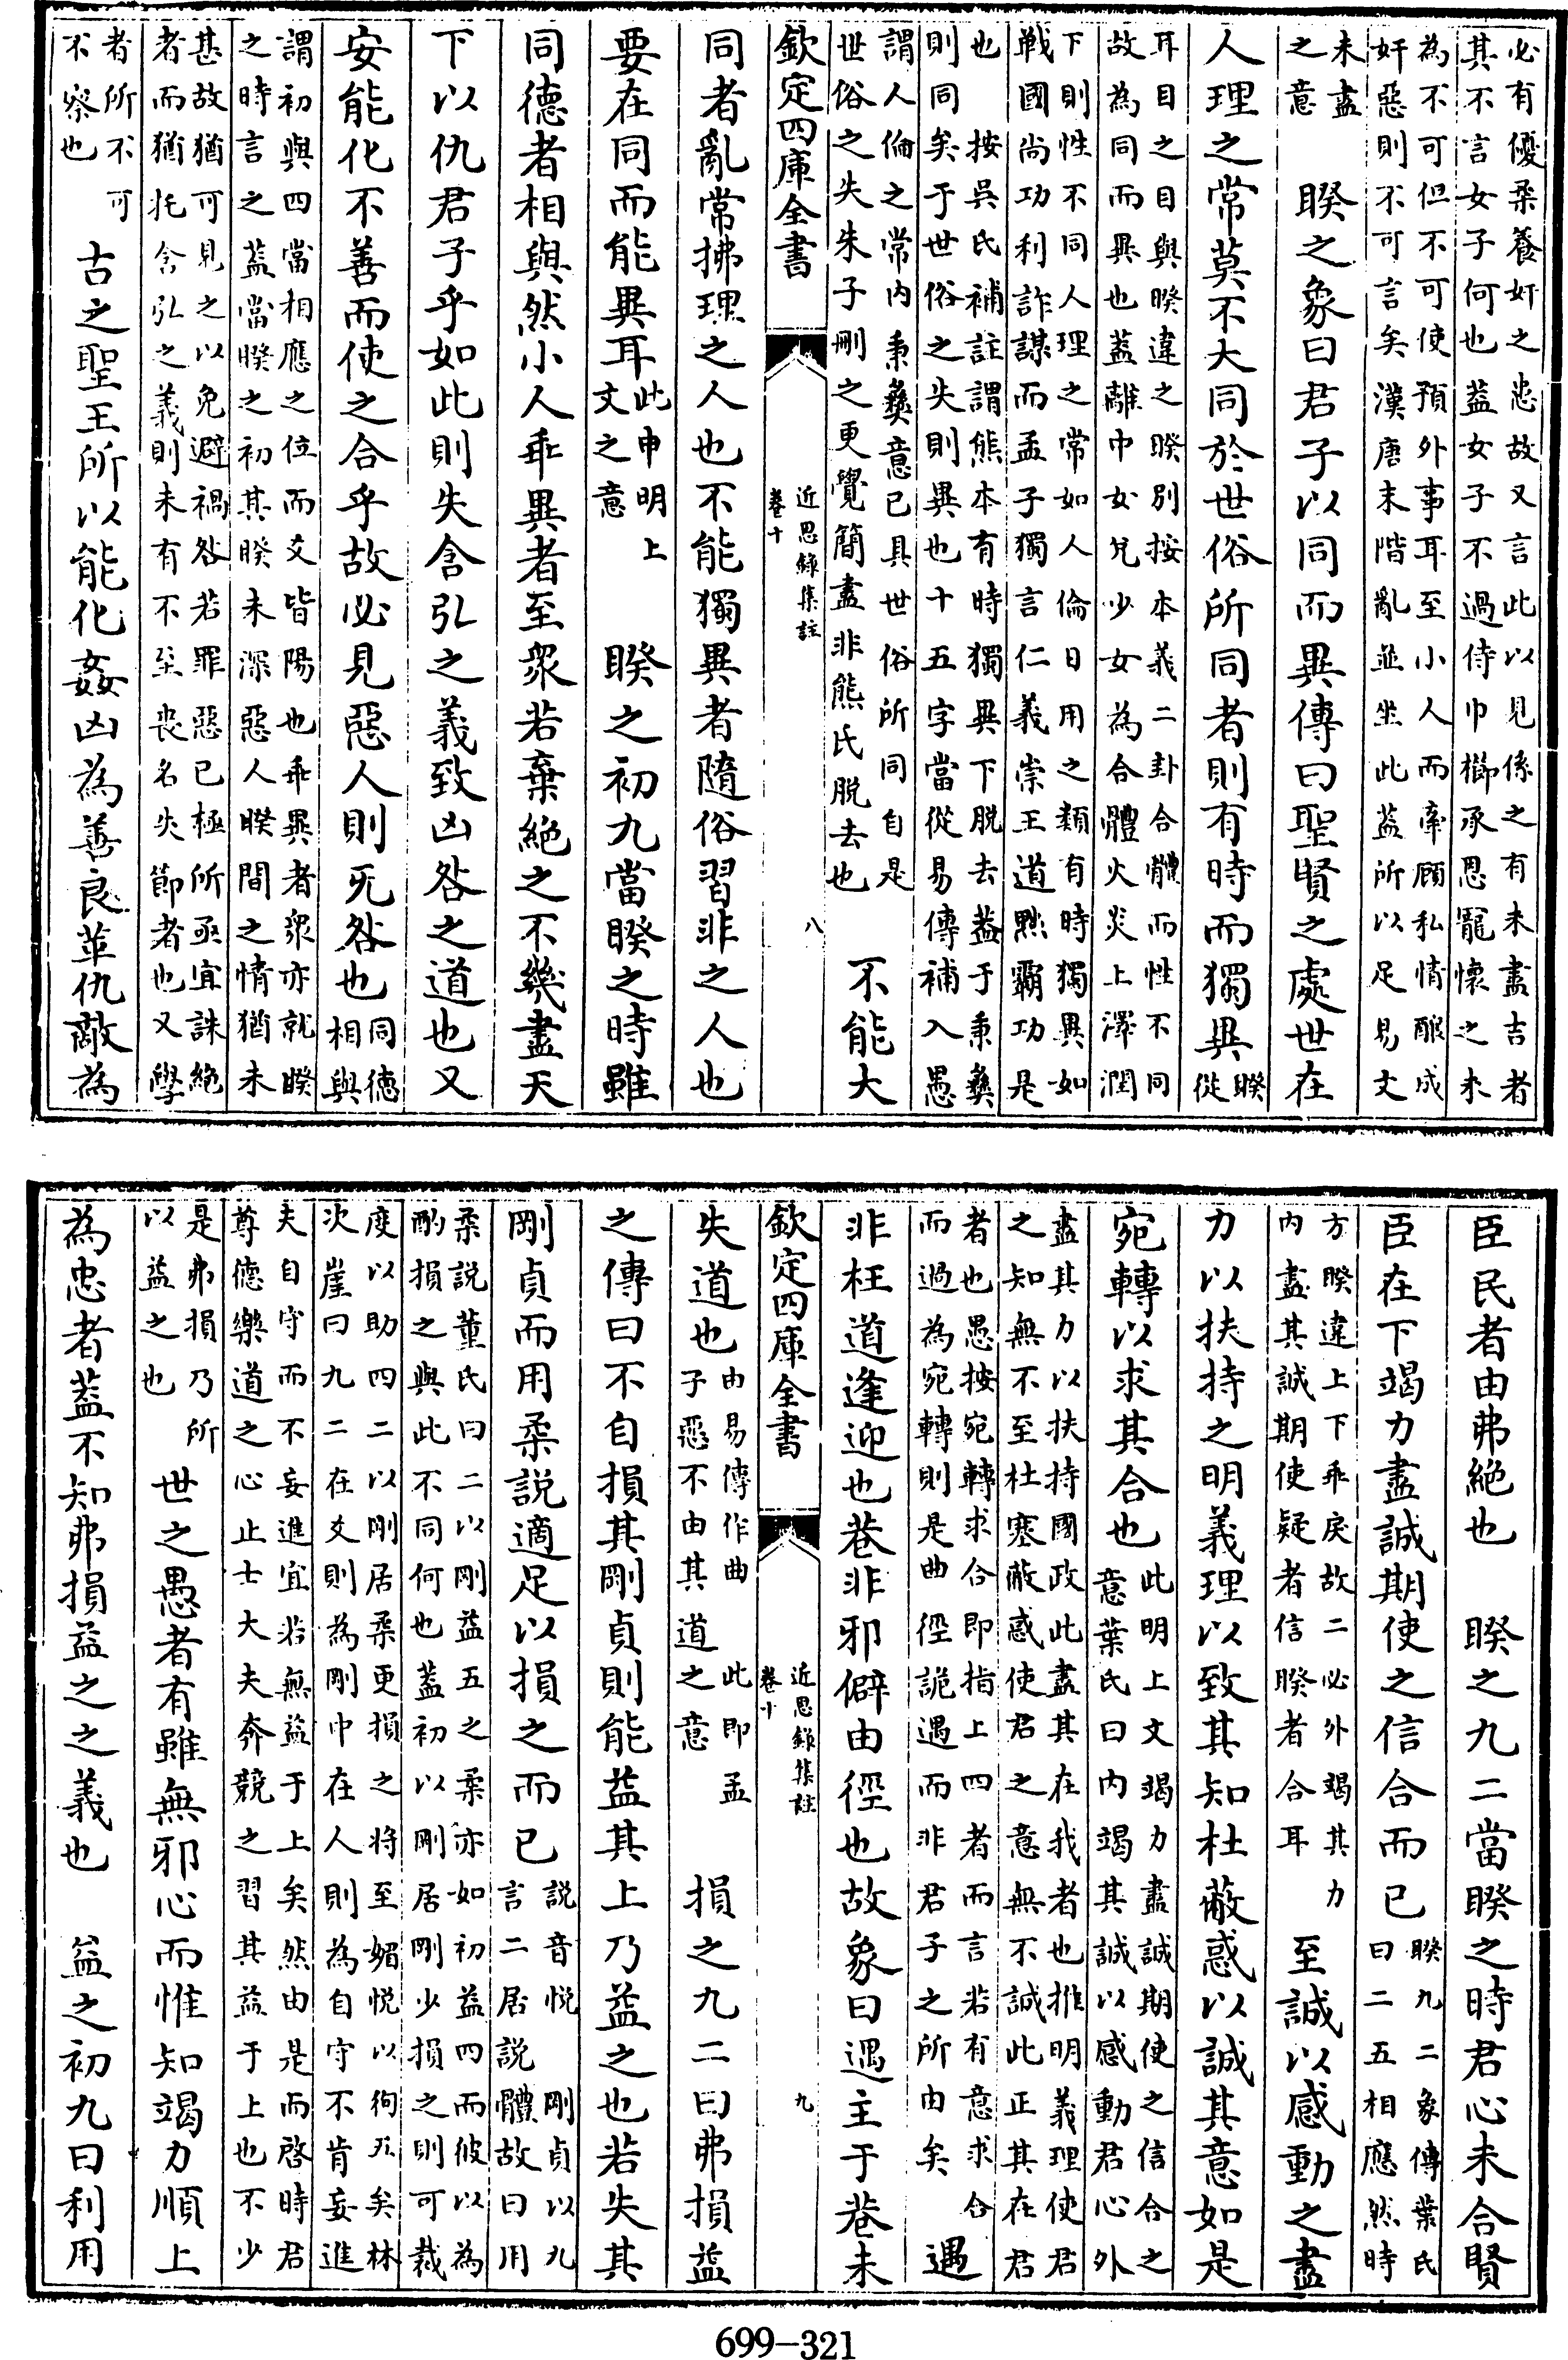 必有優柔養奸之患故又言此以見係之有未盡吉者
其不言女子何也葢女子不過侍巾櫛承恩寵懷之未
為不可但不可使預外事耳至小人而牽顧私情釀成
奸惡則不可言矣漢唐末階亂並坐此葢所以足易文
未盡
之意
睽之象曰君子以同而異傳曰聖賢之處世在
人理之常莫不大同於世俗所同者則有時而獨異
睽
從
耳目之目與睽違之睽別按本義二卦合體而性不同
故為同而異也葢離中女兌少女為合體火炎上澤潤
下則性不同人理之常如人倫日用之類有時獨異如
戰國尚功利詐謀而孟子獨言仁義崇王道黜霸功是
也　按吳氏補註謂熊本有時獨異下脫去葢于秉彝
則同矣于世俗之失則異也十五字當從易傳補入愚
謂人倫之常内秉彝意已具世俗所同自是
世俗之失朱子刪之更覺簡盡非熊氏脫去也
不能大
欽定四庫全書
近思錄集註
卷十
八
同者亂常拂理之人也不能獨異者隨俗習非之人也
要在同而能異耳
此申明上
文之意
睽之初九當睽之時雖
同德者相與然小人乖異者至衆若棄絶之不幾盡天
下以仇君子乎如此則失含弘之義致凶咎之道也又
安能化不善而使之合乎故必見惡人則无咎也
同德
相與
謂初與四當相應之位而爻皆陽也乖異者衆亦就睽
之時言之葢當睽之初其睽未深惡人睽間之情猶未
甚故猶可見之以免避禍咎若罪惡已極所亟宜誅絶
者而猶托含弘之義則未有不至喪名失節者也又學
者所不可
不察也
古之聖王所以能化姦凶為善良革仇敵為
臣民者由弗絶也　睽之九二當睽之時君心未合賢
臣在下竭力盡誠期使之信合而已
睽九二象傳葉氏
曰二五相應然時
方睽違上下乖戾故二必外竭其力
内盡其誠期使疑者信睽者合耳
至誠以感動之盡
力以扶持之明義理以致其知杜蔽惑以誠其意如是
宛轉以求其合也
此明上文竭力盡誠期使之信合之
意葉氏曰内竭其誠以感動君心外
盡其力以扶持國政此盡其在我者也推明義理使君
之知無不至杜塞蔽惑使君之意無不誠此正其在君
者也愚按宛轉求合即指上四者而言若有意求合
而過為宛轉則是曲徑詭遇而非君子之所由矣
遇
非枉道逢迎也巷非邪僻由徑也故象曰遇主于巷未
欽定四庫全書
近思錄集註
卷十
九
失道也
由易傳作曲　此即孟
子惡不由其道之意
損之九二曰弗損益
之傳曰不自損其剛貞則能益其上乃益之也若失其
剛貞而用柔説適足以損之而已
説音悅　剛貞以九
言二居説體故曰用
柔説董氏曰二以剛益五之柔亦如初益四而彼以為
酌損之與此不同何也葢初以剛居剛少損之則可裁
度以助四二以剛居柔更損之將至媚悅以徇人矣林
次崖曰九二在爻則為剛中在人則為自守不肯妄進
夫自守而不妄進宜若無益于上矣然由是而啓時君
尊德樂道之心止士大夫奔競之習其益于上也不少
是弗損乃所
以益之也
世之愚者有雖無邪心而惟知竭力順上
為忠者葢不知弗損益之之義也　益之初九曰利用
699-321